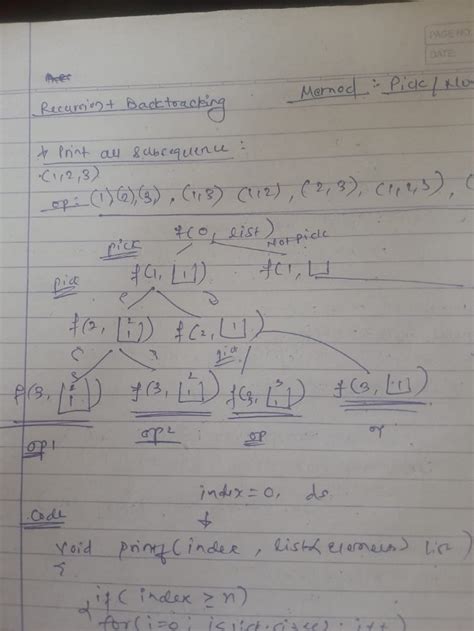 PAGE NO.
DATE
Recursion + Backtracking
Method :- Pick /
* Print all subsequence :
(1,2,3)
op: (1),(2),(3), (1,3) (1,2), (2,3), (1,2,3),
f(0, list)
pick
Not pick
f(1, [1])
f(1, [ ]
pick
f(2, [2 1]) f(2, [1])
pick
f(3, [3 2 1]) f(3, [2 1]) f(3, [3 1]) f(3, [1])
op1 op2 op op
index=0, ds
Code
void print( index , list< elements> list )
{
if( index ≥ n)
for(i=0; i<list.size(); i++)